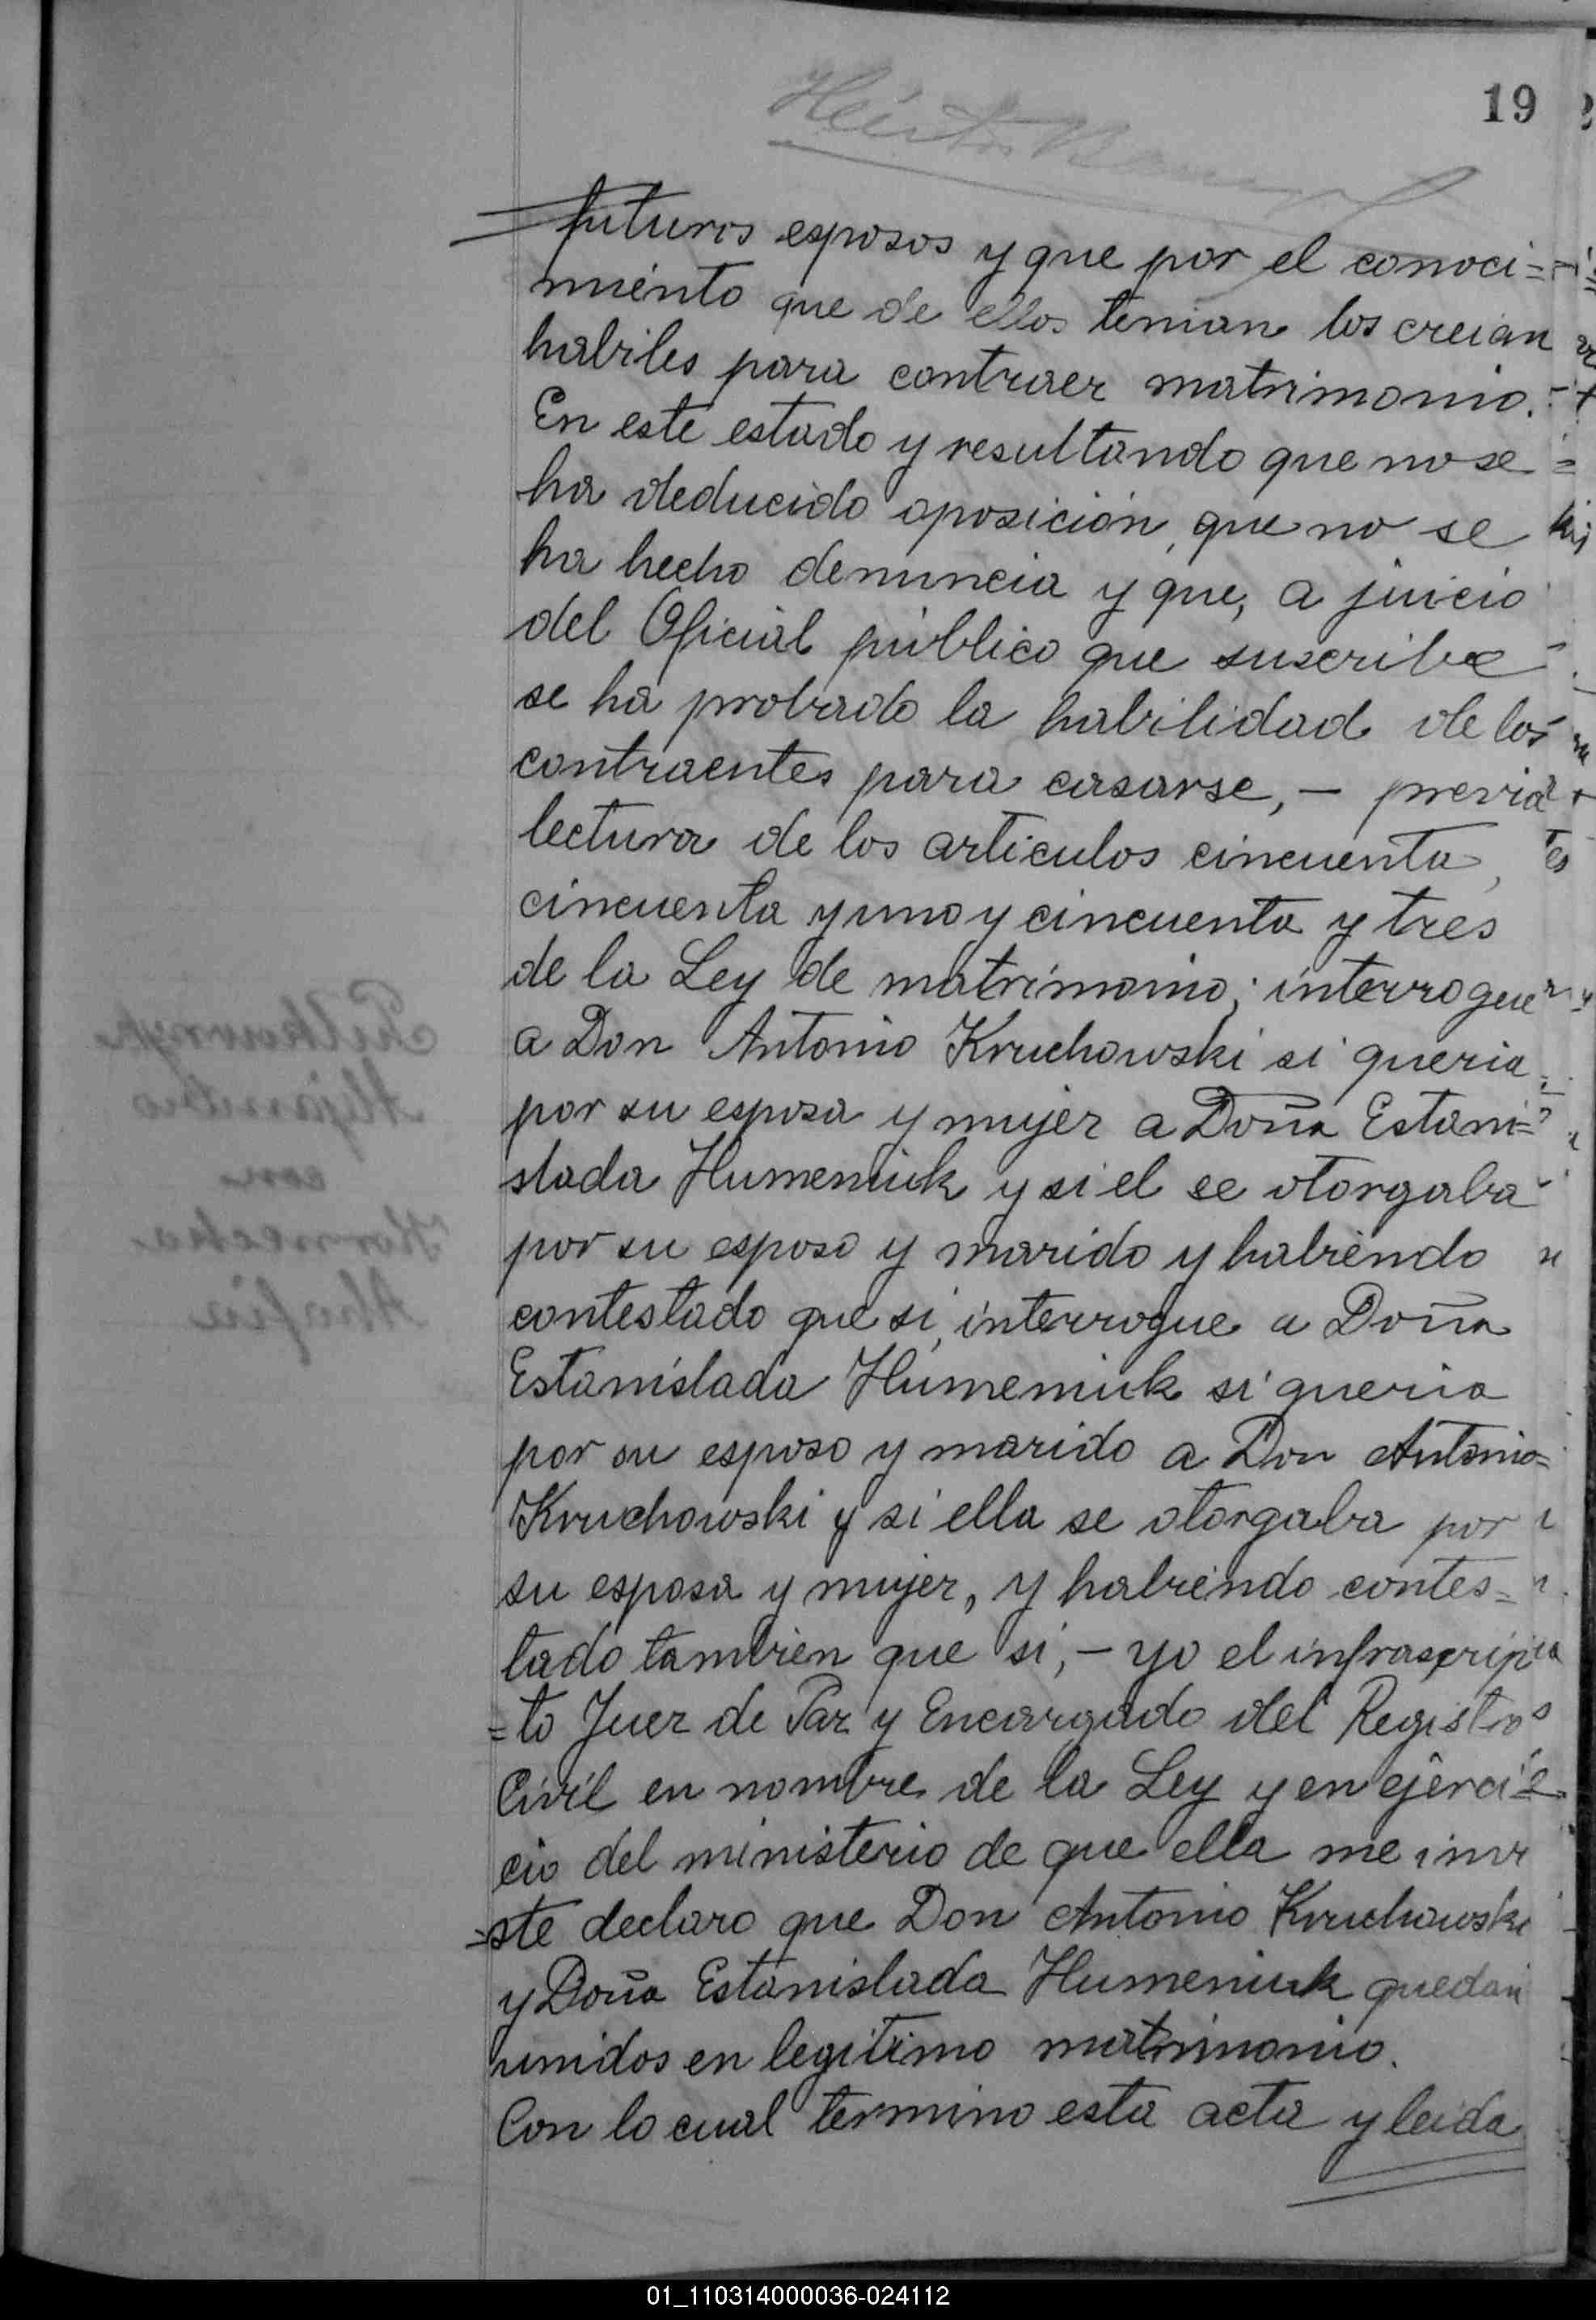 19
futuros esposos y que por el conoci=
miento que de ellos tenian los creian
habiles para contraer matrimonio.
En este estado y resultando que no se
ha deducido oposición, que no se
ha hecho denuncia y que, a juicio
del Oficial público que suscribe
se ha probado la habilidad de los
contraentes para casarse, - previa
lectura de los articulos cincuenta,
cincuenta y uno y cincuenta y tres
de la Ley de matrimonio; interrogue
a Don Antonio Kruchowski si queria
por su esposa y mujer a Doña Estani=
slada Humeniuk y si el se otorgaba
por su esposo y marido y habiendo
contestado que si, interrogue a Doña
Estanislada Humeniuk si queria
por su esposo y marido a Don Antonio=
Kruchowski y si ella se otorgaba por
su esposa y mujer, y habiendo contes=
tado tambien que si, - yo el infrascrip
=to Juez de Paz y Encargado del Registro
Civil en nombre de la Ley y en ejerci=
cio del ministerio de que ella me inv
=ste declaro que Don Antonio Kruchowski
y Doña Estanislada Humeniuk quedan
unidos en legitimo matrimonio.
Con lo cual termino esta acta y leida
01_110314000036-024112